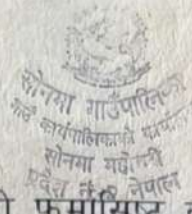 सोनमा गाउँपालिका
गाउँ कार्यपालिकाको
सोनमा महोत्तरी
प्रदेश नं. २ नेपाल